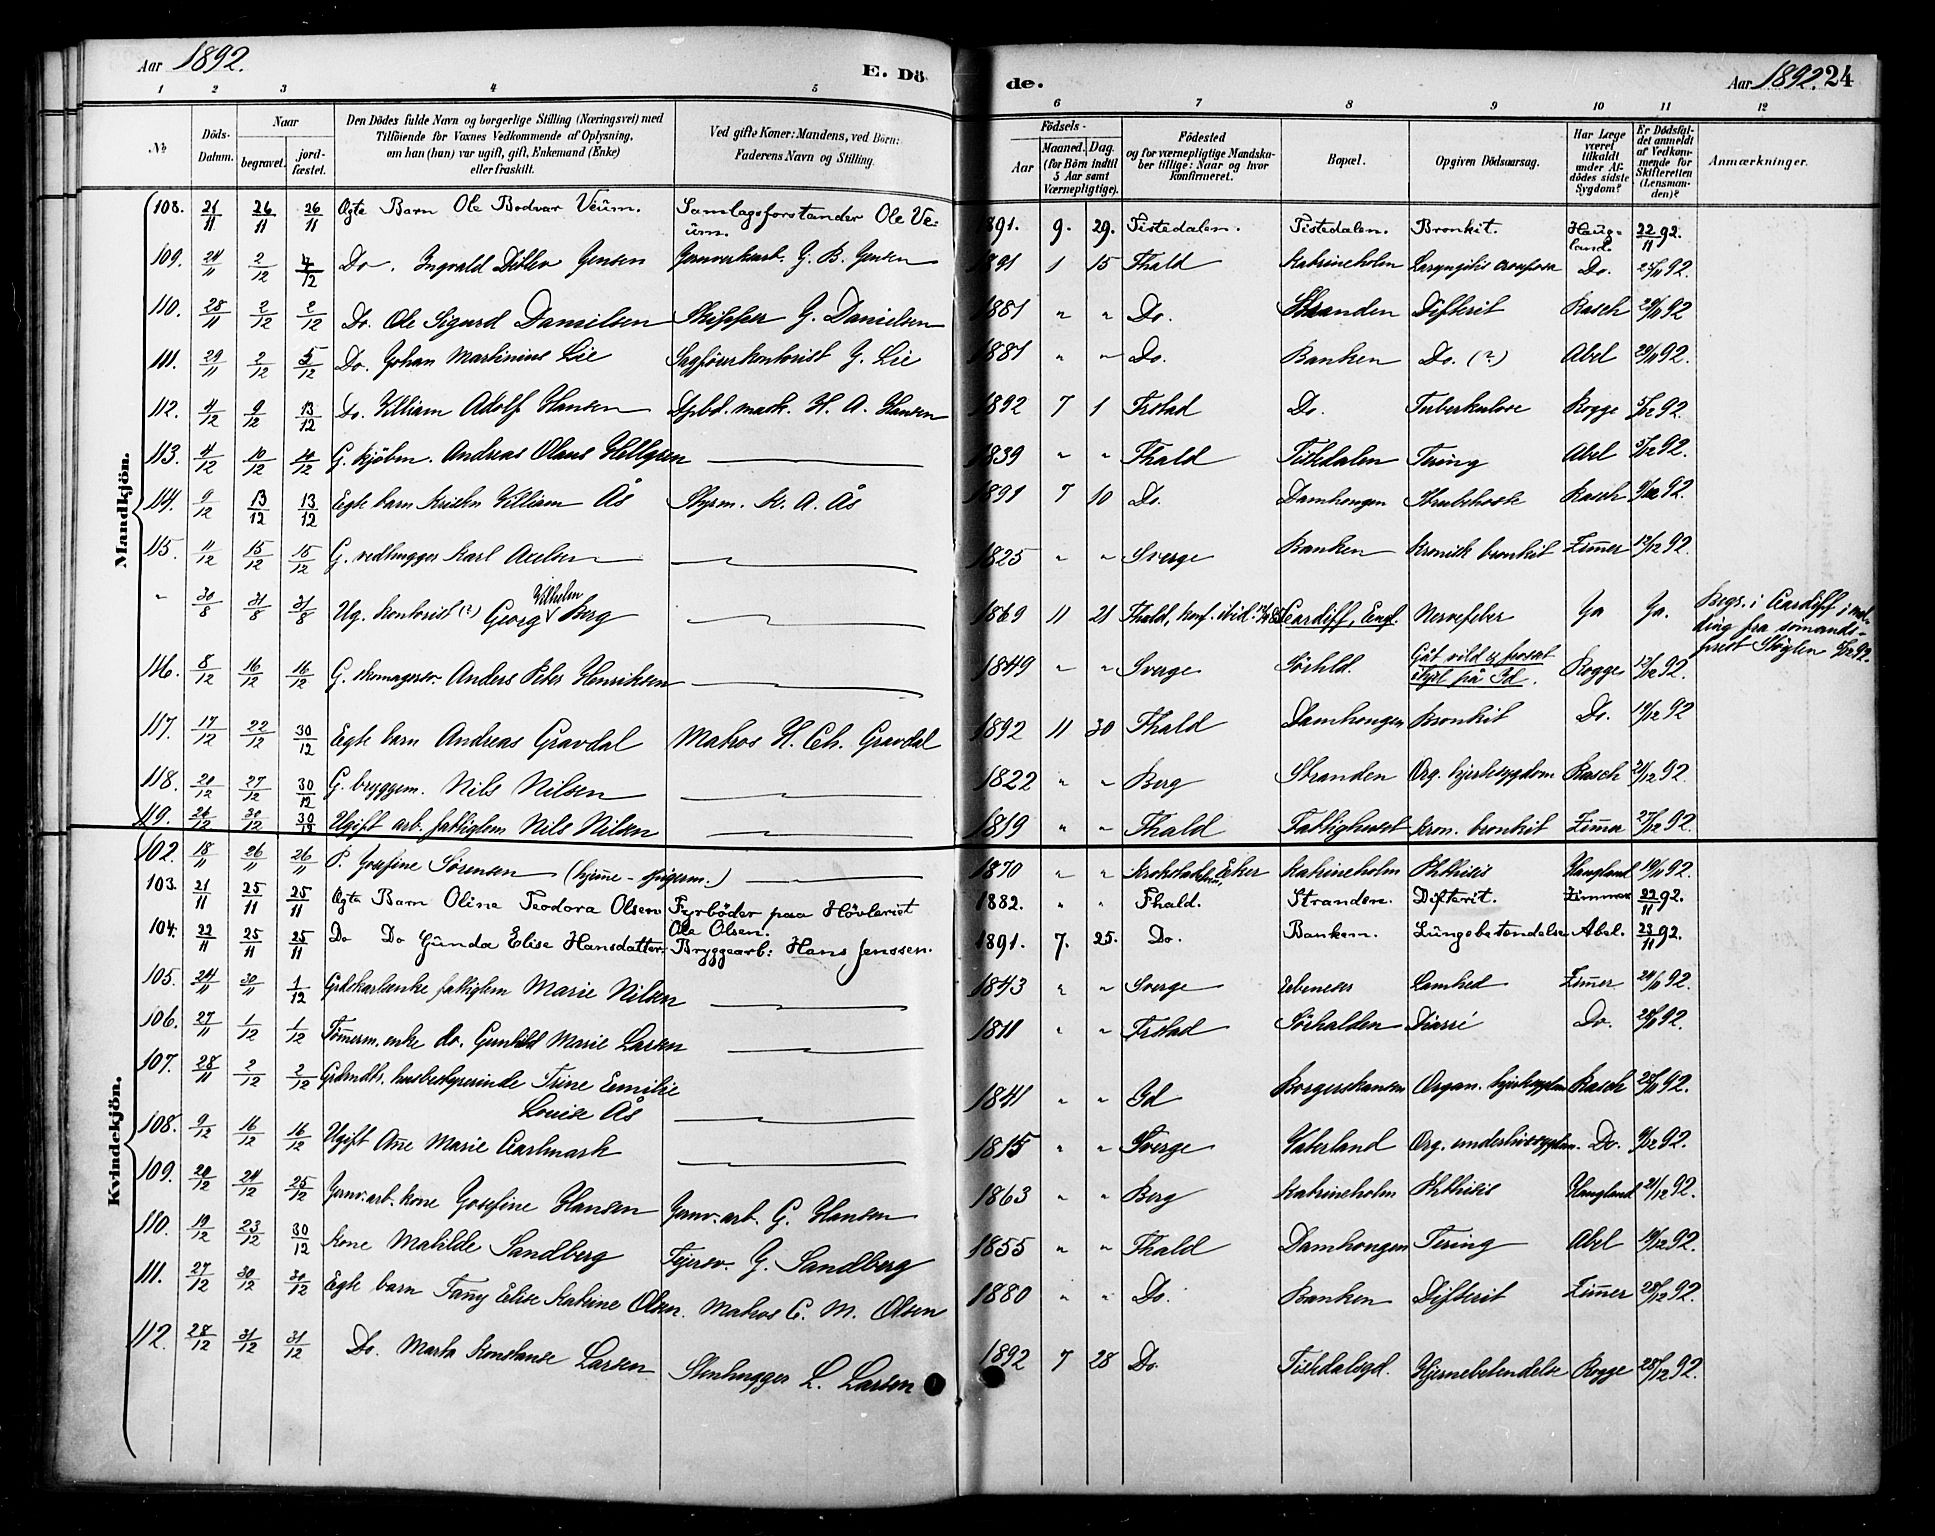 Aar 1892.
E. Dö
de.
Aar 1892. 24
1 2 3 4 5 6 7 8 9 10 11 12
No
Döds-Datum.
Naar
begravet.
jord-fæstet.
Den Dödes fulde Navn og borgerlige Stilling (Næringsvei) med
Tilföiende for Voxnes Vedkommende af Oplysning,
om han (hun) var ugift, gift, Enkemand (Enke)
eller fraskilt.
Ved gifte Koner: Mandens, ved Börn:
Faderens Navn og Stilling.
Födsels-
Aar
Maaned. Dag.
(for Börn indtil
5 Aar samt
Værnepligtige).
Födested
og for værnepligtige Mandska-
ber tillige: Naar og hvor
konfirmeret.
Bopæl.
Opgiven Dödsaarsag.
Har Læge
været
tilkaldt
under Af-
dödes sidste
Sygdom?
Er Dödsfal-
det anmeldt
af Vedkom-
mende for
Skifteretten
(Lensman-
den)?
Anmærkninger.
Mandkjön.
108. 21/11 26/11 26/11 Ægte Barn Ole Bodvar Veum. Samlagsforstander Ole Ve-um. 1891. 9. 29. Tistedalen. Tistedalen. Bronkit. Haug-land. 22/11 92.
109. 24/11 2/12 4/12 Do. Ingvald Ditlev Jensen Jernverksarb. G. B. Jensen 1891 1 15 Fhald Katrineholm Laryngitis crouposa Do. 25/11 92.
110. 28/11 2/12 2/12 Do. Ole Sigurd Danielsen Skipper G. Danielsen 1881 " " Do. Stranden Difterit Rasch 29/11 92
111. 29/11 2/12 5/12 Do. Johan Martinius Lie Sagförerkontorist G. Lie 1881 " " Do. Banken Do. (?) Abel 29/11 92.
112. 4/12 9/12 13/12 Do. William Adolf Hansen Dpbd. mask. H. A. Hansen 1892 7 1 Frstad Do. Tuberkulose Rogge 5/12 92.
113. 4/12 10/12 14/12 G. kjöbm. Andreas Olaus Hellgren 1839 " " Fhald Tistedalen Tæring Abel 5/12 92.
114. 9/12 13/12 13/12 Egte barn Kristen William Ås Styrm. K. A. Ås 1891 7 10 Do. Damhougen Strubehoste Rasch 9/12 92.
115. 11/12 15/12 15/12 G. vedhugger Karl Axelsen 1825 " " Sverge Banken Kronisk bronkit Zimmer 12/12 92.
" 30/8 31/8 31/8 Ug. kontorist (?) Georg Vilhelm Berg 1869 11 21 Fhald, konf. ibid. Cardiff, Engl. Nervefeber Ja Ja. Begr. i Cardiff i mel-
ding fra sömands-
prest
116. 8/12 16/12 16/12 G. skomagersv. Anders Peter Henriksen 1849 " " Sverge Sörhld. Gåt vild og frosset ihjel på Id. Rogge 12/12 92.
117. 17/12 22/12 30/12 Egte barn Andreas Gravdal Matros H. Ch. Gravdal 1892 11 30 Fhald Damhougen Bronkit Do. 19/12 92
118. 20/12 27/12 30/12 G. bryggem. Nils Nilsen 1822 " " Berg Stranden Org. hjertesygdom Rasch 21/12 92.
119. 26/12 30/12 30/12 Ugift arb. fattiglem Nils Nilsen 1819 " " Fhald Fattighuset kron. bronkit Zimmer 27/12 92.
Kvindekjön.
102. 18/11 26/11 26/11 P. Josefine Sörensen (hjemme - 1870 " " Eker Katrineholm Phthisis Haugland 19/11 92.
103. 21/11 25/11 25/11 Ægte Barn Oline Teodora Olsen Fyrböder paa Hövleriet Ole Olsen. 1882. " " Fhald. Stranden. Difterit. Zimmer 22/11 92.
104. 22/11 25/11 25/11 Do Do Gunda Elise Hansdatter. Bryggearb: Hans Jenssen. 1891. 7. 25. Do. Banken. Lungebetendelse Abel. 23/11 92.
105. 24/11 30/11 1/12 Grdskarlenke fattiglem Marie Nilsen 1843 " " Sverge Ebeneser Lamhed Zimmer 24/11 92.
106. 27/11 1/12 1/12 Tömmerm. enke do. Gunhild Marie Larsen 1811 " " Frstad Sörhalden Diarré Do. 28/11 92.
107. 28/11 2/12 2/12 Grdmdtr. husbestyrerinde Trine Emilie
Louise Ås 1841 " " Id Borgerskansen Organ. hjertesygdom Rasch 28/11 92.
108. 9/12 16/12 16/12 Ugift Ane Marie Carlmark 1815 " " Sverge Vaterland Org. underlivssygdom. Do. 9/12 92.
109. 20/12 24/12 25/12 Jernv.arb. kone Josefine Hansen Jernv.arb. G. Hansen 1863 " " Berg Katrineholm Phthisis Haugland 21/12 92.
110. 19/12 23/12 30/12 Kone Matilde Sandberg Fejersv. G. Sandberg 1855 " " Fhald Damhougen Tæring Abel 19/12 92.
111. 27/12 30/12 30/12 Egte barn Fanny Elise Katrine Olsen. Matros C. M. Olsen 1880 " " Do. Banken Difterit Zimmer 28/12 92.
112. 28/12 31/12 31/12 Do. Marta Konstanse Larsen Stenhugger L. Larsen 1892 7 28 Do. Tistedalsgd. Hjernebetendelse Rogge 28/12 92.